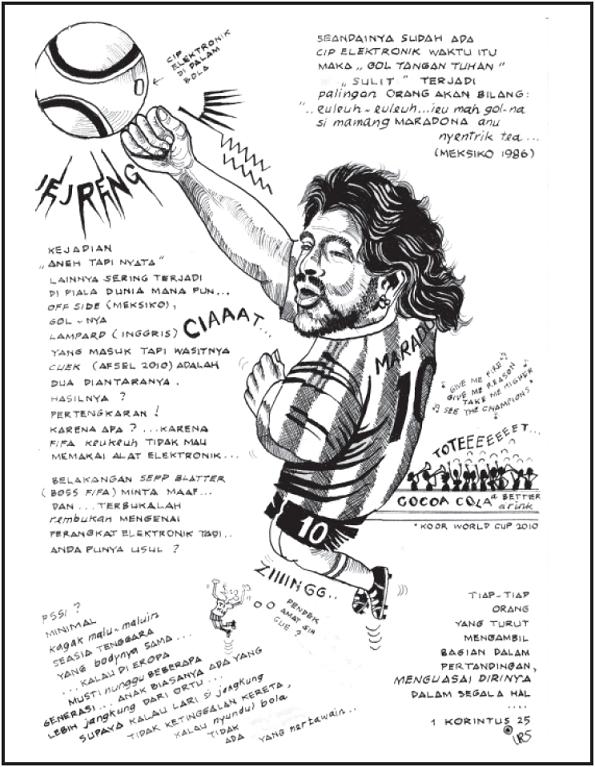 CIP
ELEKTRONIK
DI DALAM
BOLA
SEANDAINYA SUDAH ADA
CIP ELEKTRONIK WAKTU ITU
MAKA „ GOL TANGAN TUHAN "
„ SULIT " TERJADI
palingan ORANG AKAN BILANG:
"..euleuh - euleuh...ieu mah gol-na
si mamang MARADONA anu
nyentrik tea...
(MEKSIKO 1986)
JEJRENG
KEJADIAN
„ANEH TAPI NYATA"
LAINNYA SERING TERJADI
DI PIALA DUNIA MANA PUN...
OFF SIDE (MEKSIKO),
GOL - NYA
LAMPARD (INGGRIS)
YANG MASUK TAPI WASITNYA
CUEK (AFSEL 2010) ADALAH
DUA DIANTARANYA.
HASILNYA ?
PERTENGKARAN !
KARENA APA ? ...KARENA
FIFA keukeuh TIDAK MAU
MEMAKAI ALAT ELEKTRONIK...
CIAAAT...
MARADO
10
"GIVE ME FIRE
GIVE ME REASON
TAKE ME HIGHER
SEE THE CHAMPIONS"
TOTEEEEEEET...
COCOA COLA a BETTER
drink
*KOOR WORLD CUP 2010
BELAKANGAN SEPP BLATTER
(BOSS FIFA) MINTA MAAF...
DAN ... TERBUKALAH
rembukan MENGENAI
PERANGKAT ELEKTRONIK TADI..
ANDA PUNYA USUL ?
10
ZIIIINGG..
PENDEK
AMAT SIH
GUE ?
PSSI ?
MINIMAL
kagak malu-maluin
SEASIA TENGGARA
YANG bodynya SAMA...
...KALAU DI EROPA
MUSTI nunggu BEBERAPA
GENERASI... ANAK BIASANYA ADA YANG
LEBIH jangkung DARI ORTU...
SUPAYA KALAU LARI si jangkung
TIDAK KETINGGALAN KERETA,
KALAU nyundul bola,
TIDAK
ADA YANG nertawain...
TIAP-TIAP
ORANG
YANG TURUT
MENGAMBIL
BAGIAN DALAM
PERTANDINGAN,
MENGUASAI DIRINYA
DALAM SEGALA HAL
....
1 KORINTUS 25